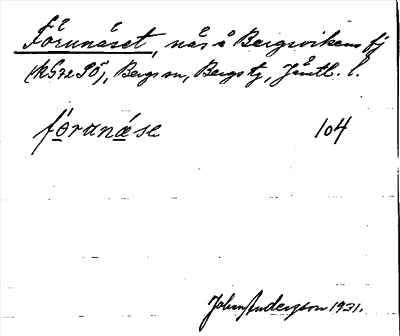 Fårunäset, näs å Bergsvikens fj
(RG22SÖ), Bergs sn, Bergs tg, Jämtl. l.
föranäse 104
Johan Anderson 1931.